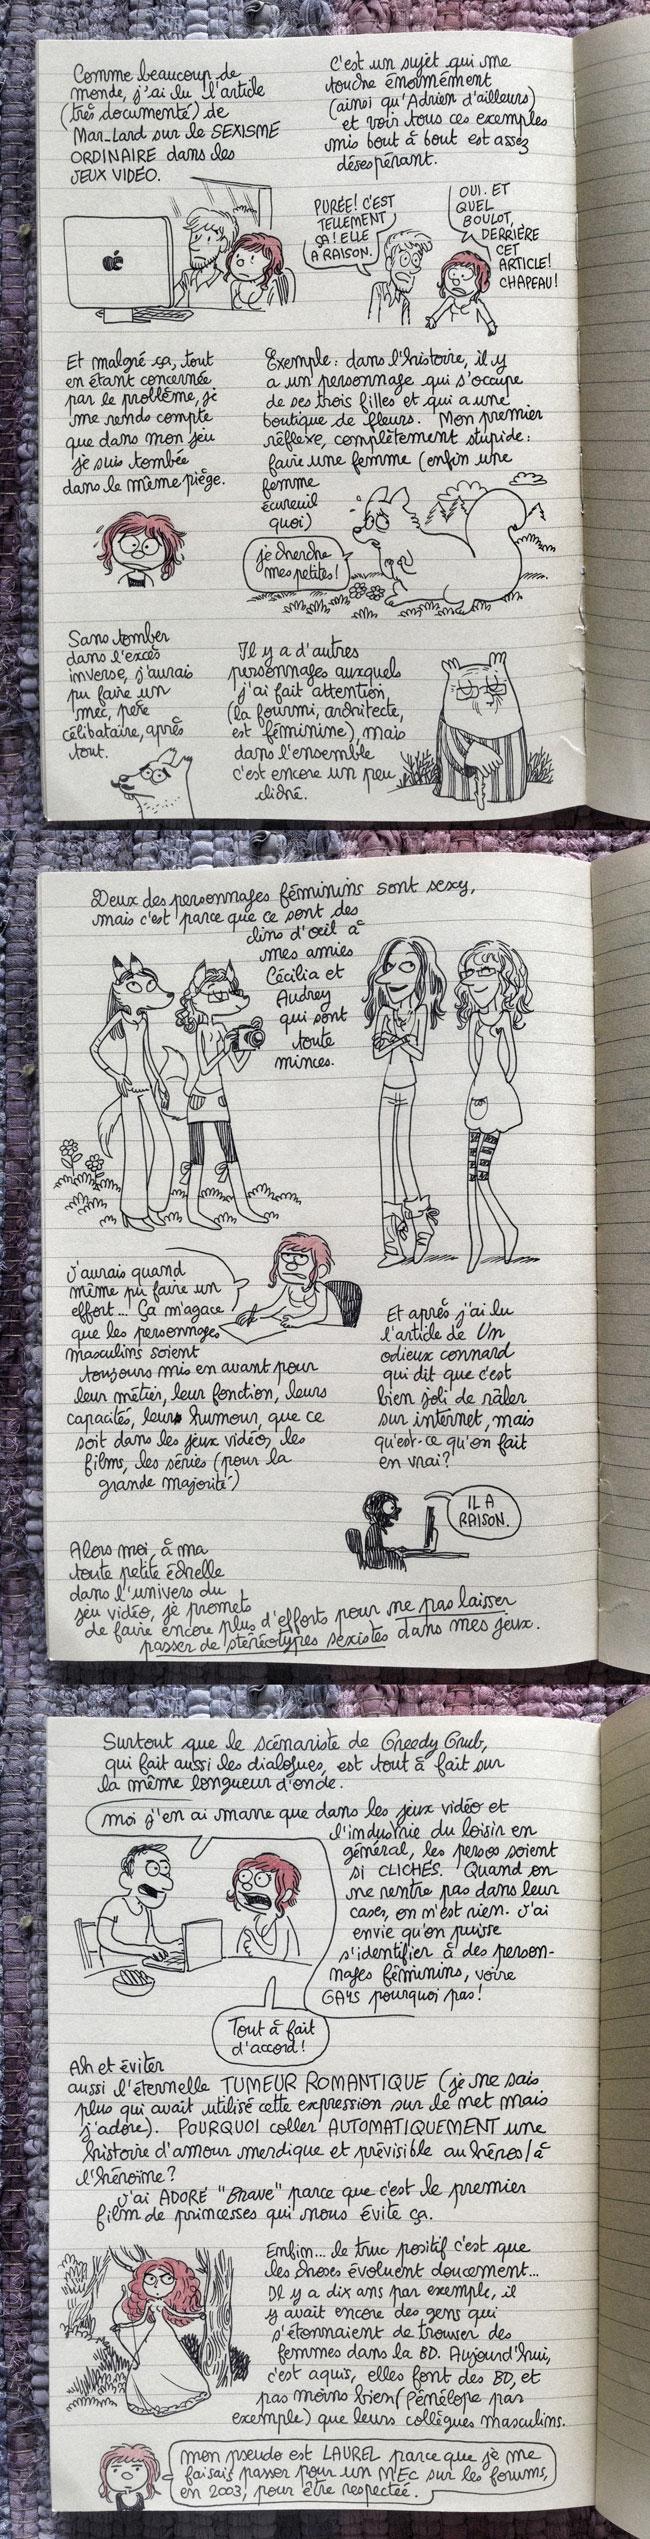 Comme beaucoup de
monde, j'ai lu l'article
(très documenté) de
Mar_Lard sur le SEXISME
ORDINAIRE dans les
JEUX VIDÉO.
C'est un sujet qui me
touche énormément
(ainsi qu'Adrien d'ailleurs)
et voir tous ces exemples
mis bout à bout est assez
désespérant.
PURÉE! C'EST
TELLEMENT
ÇA! ELLE
A RAISON.
OUI. ET
QUEL
BOULOT,
DERRIÈRE
CET
ARTICLE!
CHAPEAU!
Et malgré ça, tout
en étant concernée
par le problème, je
me rends compte
que dans mon jeu
je suis tombée
dans le même piège.
Exemple: dans l'histoire, il y
a un personnage qui s'occupe
de ses trois filles et qui a une
boutique de fleurs. Mon premier
réflexe, complètement stupide:
faire une femme (enfin une
femme
écureuil
quoi)
je cherche
mes petites!
Sans tomber
dans l'excès
inverse, j'aurais
pu faire un
mec, père
célibataire, après
tout.
Il y a d'autres
personnages auxquels
j'ai fait attention,
(la fourmi, architecte,
est féminine), mais
dans l'ensemble
c'est encore un peu
cliché.
Deux des personnages féminins sont sexy,
mais c'est parce que ce sont des
clins d'œil à
mes amies
Cécilia et
Audrey
qui sont
toute
minces.
J'aurais quand
même pu faire un
effort... Ça m'agace
que les personnages
masculins soient
toujours mis en avant pour
leur métier, leur fonction, leurs
capacités, leur humour, que ce
soit dans les jeux vidéo, les
films, les séries (pour la
grande majorité)
Et après j'ai lu
l'article de Un
odieux connard
qui dit que c'est
bien joli de râler
sur internet, mais
qu'est-ce qu'on fait
en vrai?
IL A
RAISON.
Alors moi, à ma
toute petite échelle
dans l'univers du
jeu vidéo, je promets
de faire encore plus d'efforts pour ne pas laisser
passer de stéréotypes sexistes dans mes jeux.
Surtout que le scénariste de Greedy Grub,
qui fait aussi les dialogues, est tout à fait sur
la même longueur d'onde.
moi j'en ai marre que dans les jeux vidéo et
l'industrie du loisir en
général, les persos soient
si CLICHÉS. Quand on
ne rentre pas dans leur
cases, on n'est rien. J'ai
envie qu'on puisse
s'identifier à des person-
nages féminins, voire
GAYS pourquoi pas!
Tout à fait
d'accord!
Ah et éviter
aussi l'éternelle TUMEUR ROMANTIQUE (je ne sais
plus qui avait utilisé cette expression sur le net mais
j'adore). POURQUOI coller AUTOMATIQUEMENT une
histoire d'amour merdique et prévisible au héros/à
l'héroïne?
J'ai ADORÉ "Brave" parce que c'est le premier
film de princesses qui nous évite ça.
Enfin... le truc positif c'est que
les choses évoluent doucement...
Il y a dix ans par exemple, il
y avait encore des gens qui
s'étonnaient de trouver des
femmes dans la BD. Aujourd'hui,
c'est aquis, elles font des BD, et
pas moins bien (Pénélope par
exemple) que leurs collègues masculins.
mon pseudo est LAUREL parce que je me
faisais passer pour un MEC sur les forums,
en 2003, pour être respectée.